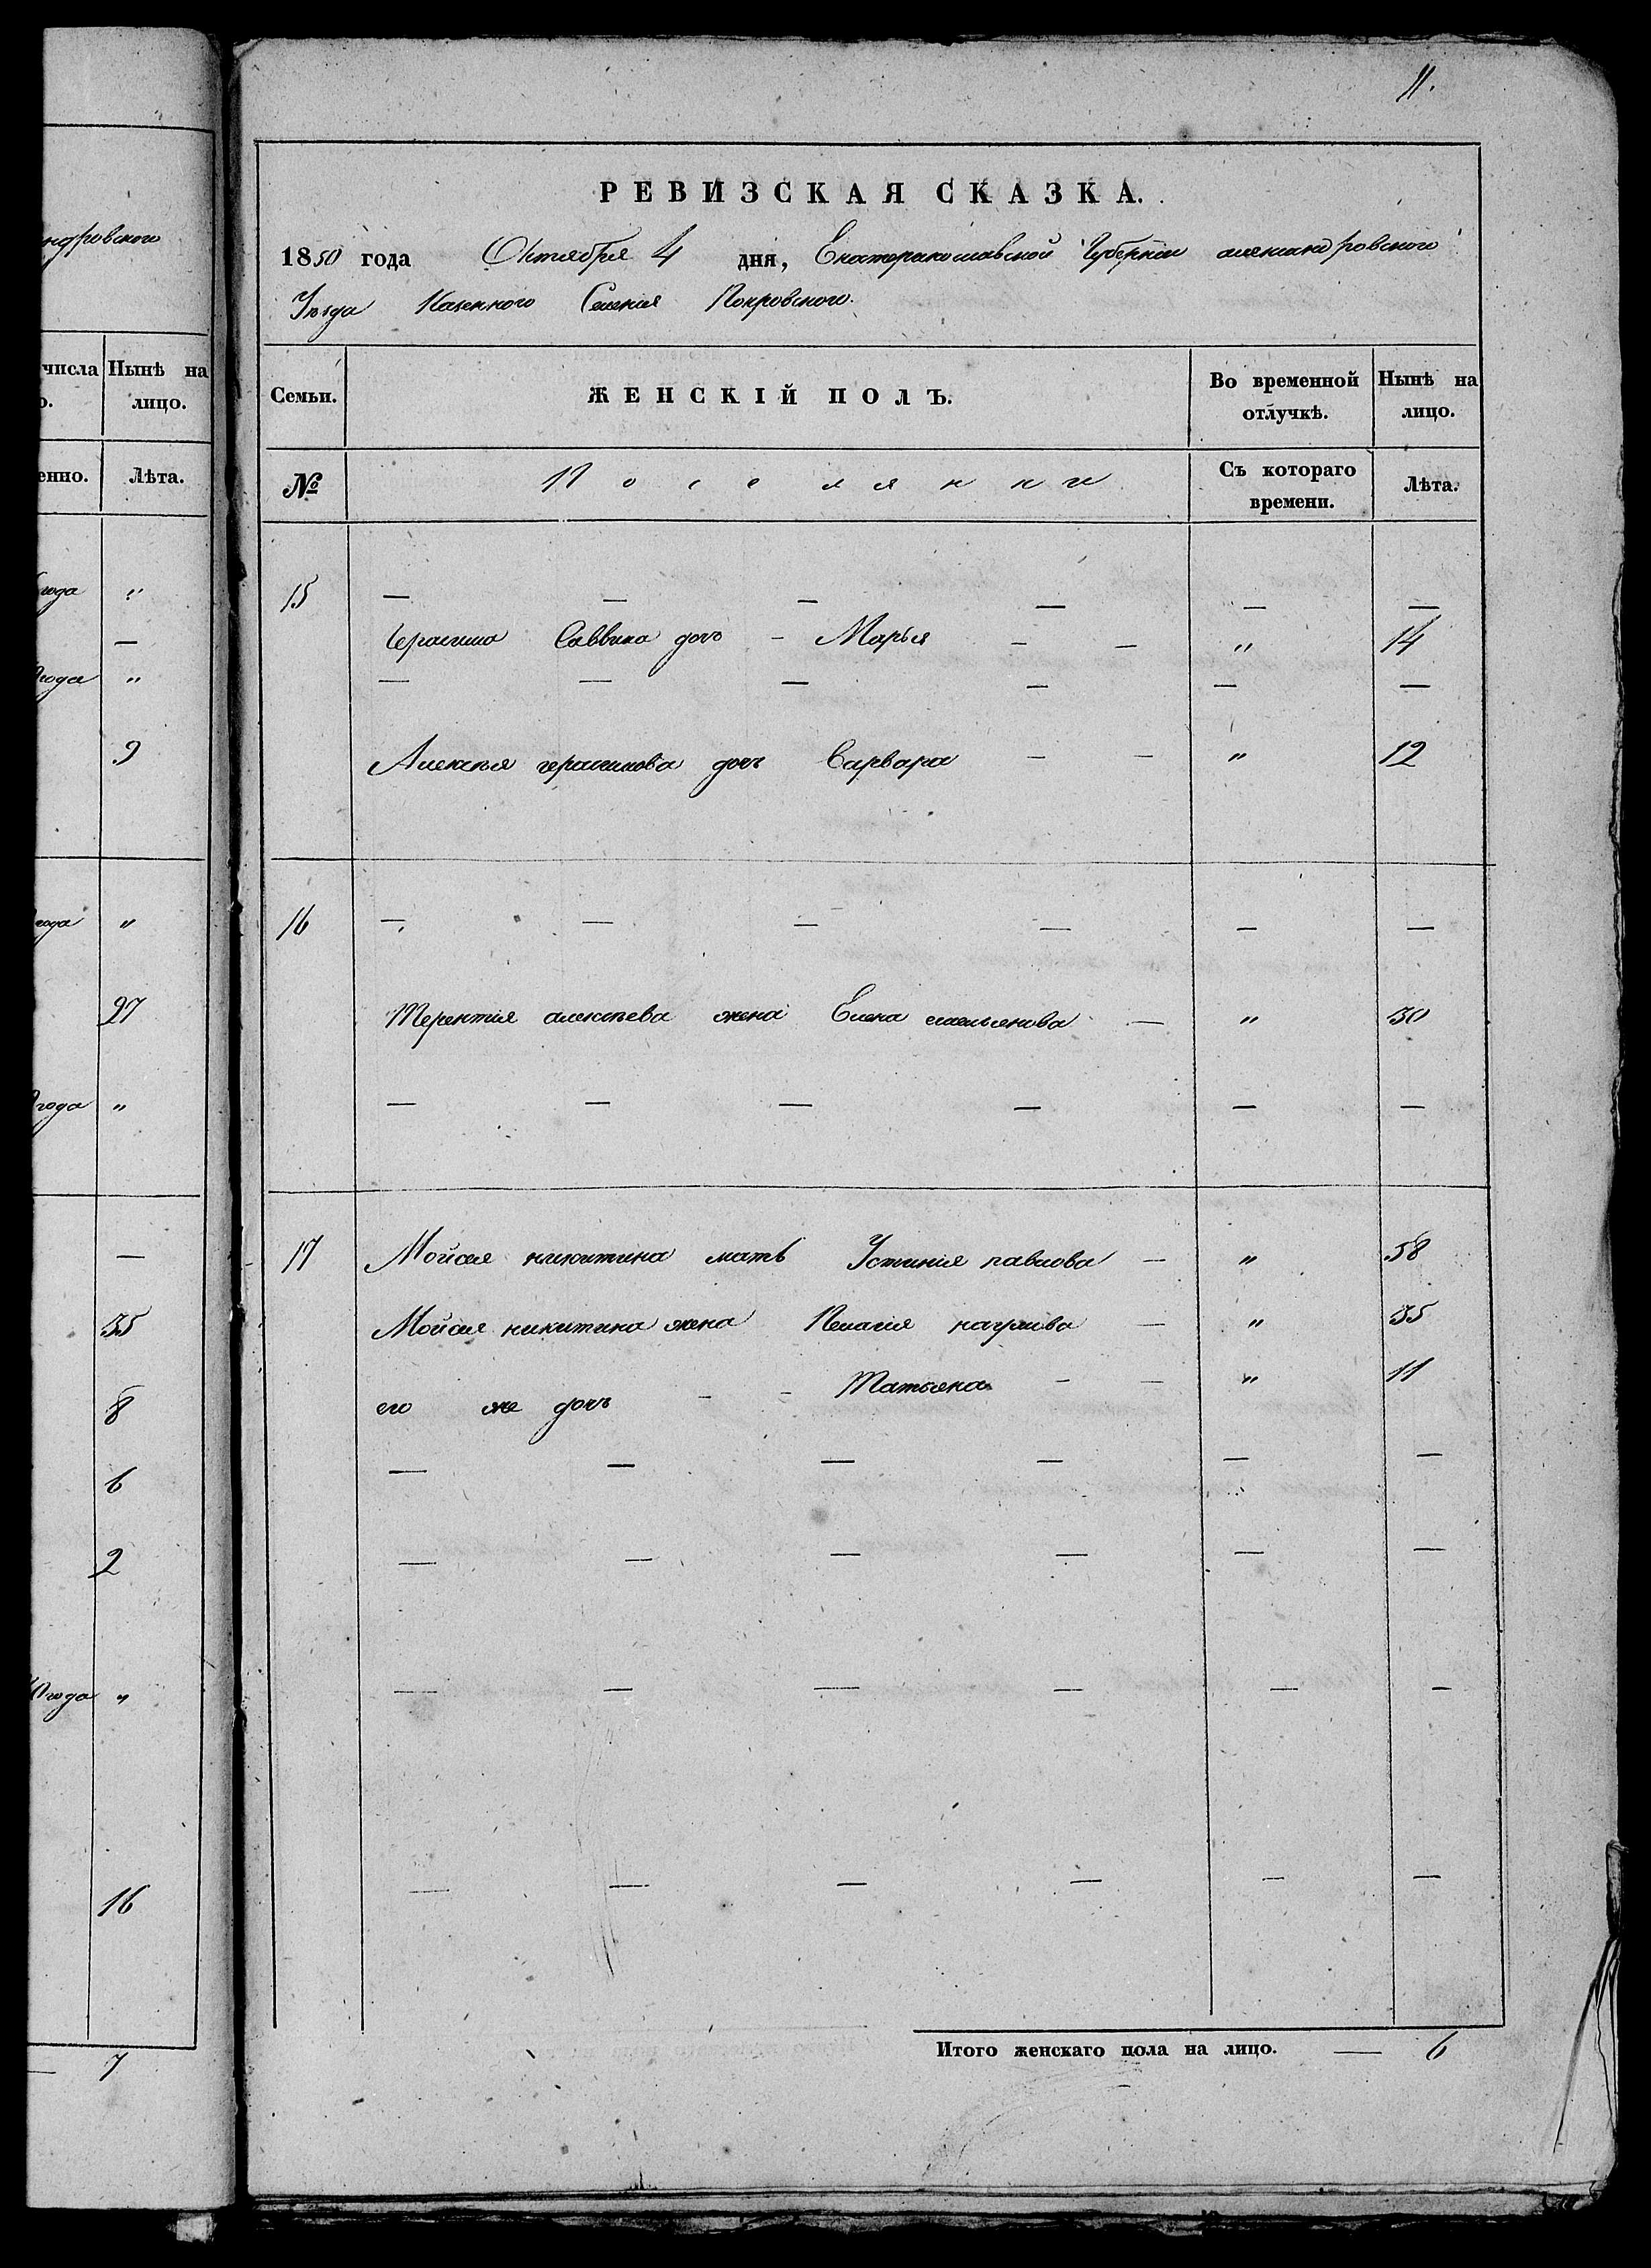 11.
РЕВИЗСКАЯ СКАЗКА.
1850 года Октября 4 дня, Екатеринославской Губернии александровского
Уѣзда Казенного Селения Покровского.
Семьи. ЖЕНСКІЙ ПОЛЪ. Во временной отлучкѣ. Нынѣ на лицо.
№ Поселянки Съ котораго времени. Лѣта.
15 — — — — — —
Герасима Саввина дочь - Марья — — " 14
— — — — — —
Алексѣя герасимова дочь Варвара — — " 12
16 — — — — — —
Терентія алексѣева жена Елена емельянова — " 30
— — — — — —
17 Мойсея никитина мать Устинія павлова — " 58
Мойсея никитина жена Пелагія наумова — " 35
его же дочь - - Татьяна - — " 11
— — — — — —
— — — — — —
— — — — — —
— — — — — —
Итого женскаго пола на лицо. — 6
ндровского
числа Нынѣ на
о. лицо.
енно. Лѣта.
года "
—
года "
9
года "
27
года "
—
35
8
6
2
года "
16
— 7